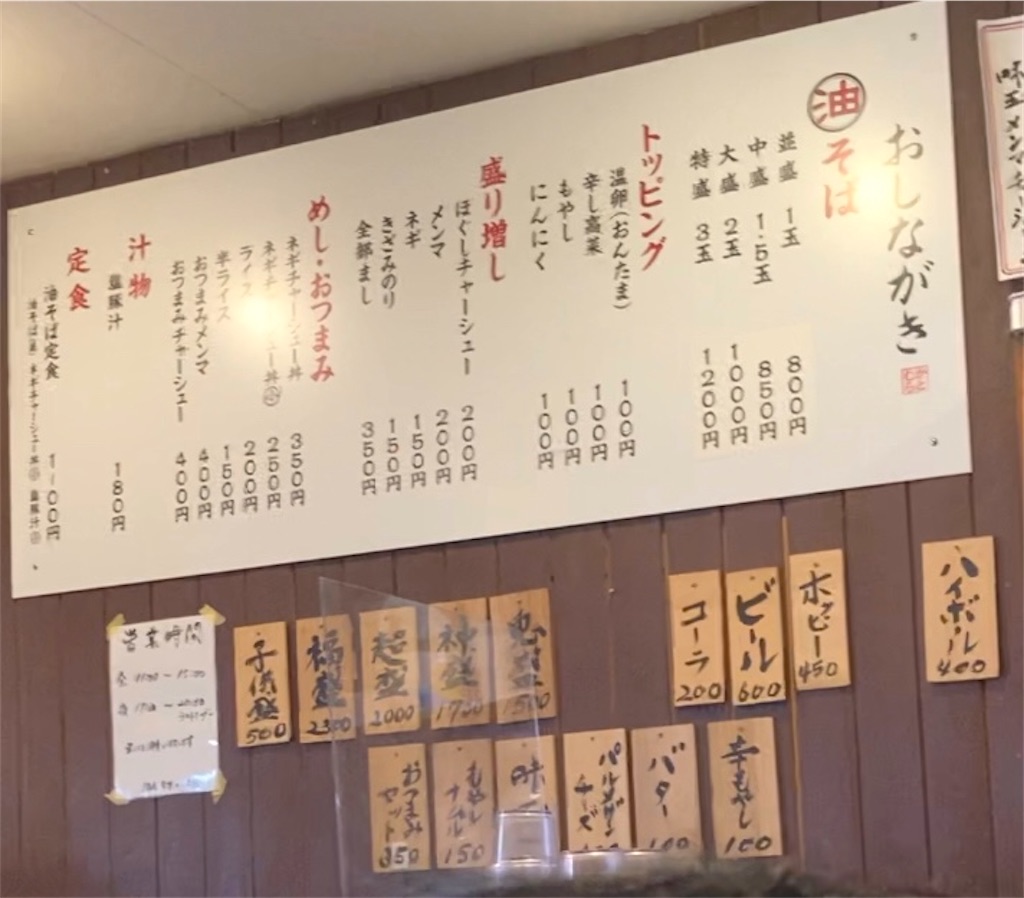 おしながき
油そば
並盛 1玉 800円
中盛 1.5玉 850円
大盛 2玉 1000円
特盛 3玉 1200円
トッピング
温卵(おんたま) 100円
辛し高菜 100円
もやし 100円
にんにく 100円
盛り増し
ほぐしチャーシュー 200円
メンマ 200円
ネギ 150円
きざみのり 150円
全部まし 350円
めし・おつまみ
ネギチャーシュー丼 350円
ネギチャーシュー丼 250円
ライス 200円
半ライス 150円
おつまみメンマ 400円
おつまみチャーシュー 400円
汁物
豚汁 180円
定食
油そば定食 1100円
ネギチャーシュー丼 豚汁
ハイボール 400
ホッピー 450
ビール 600
コーラ 200
神盛 1700
超盛 2000
福盛 2300
子供盛 500
辛もやし 100
バター 100
パルメザンチーズ
味
もやしナムル 150
おつまみセット 350
営業時間